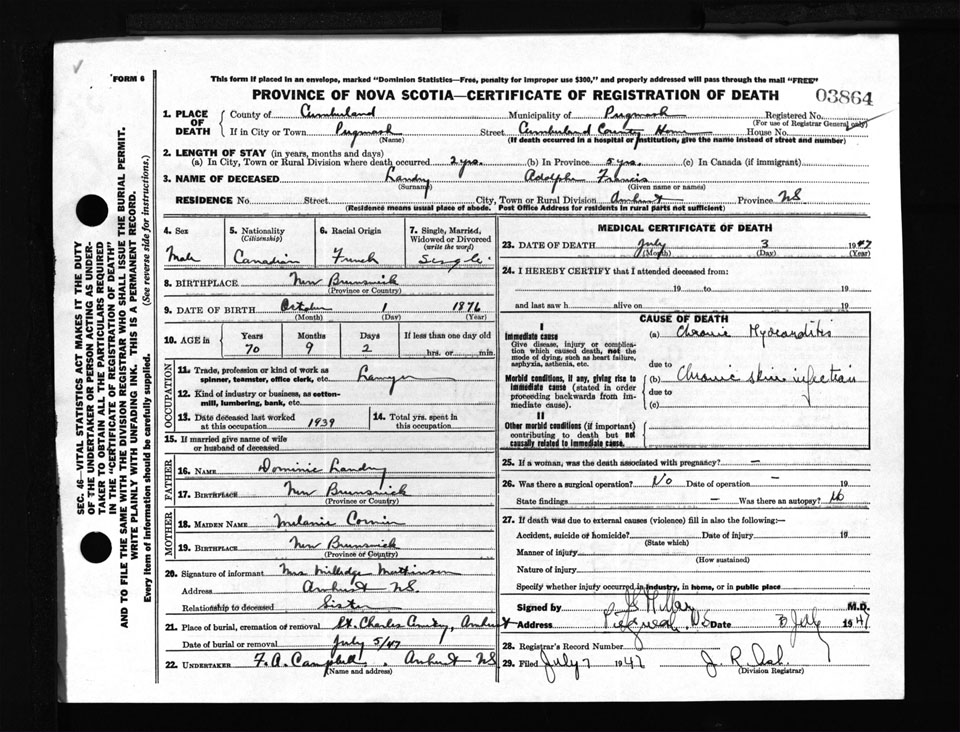 FORM 6
This form if placed in an envelope, marked "Dominion Statistics—Free, penalty for improper use $300," and properly addressed will pass through the mail "FREE"
PROVINCE OF NOVA SCOTIA—CERTIFICATE OF REGISTRATION OF DEATH
03864
1. PLACE OF DEATH
County of Cumberland Municipality of Pugwash Registered No.
(For use of Registrar General only)
If in City or Town Pugwash Street Cumberland County Home House No.
(Name) (If death occurred in a hospital or institution, give the name instead of street and number)
2. LENGTH OF STAY (in years, months and days)
(a) In City, Town or Rural Division where death occurred 2 yrs. (b) In Province 5 yrs. (c) In Canada (if immigrant)
3. NAME OF DECEASED Landry Adolphe Francis
(Surname) (Given name or names)
RESIDENCE No. Street City, Town or Rural Division Amherst Province NS
(Residence means usual place of abode. Post Office Address for residents in rural parts not sufficient)
4. Sex
Male
5. Nationality
(Citizenship)
Canadian
6. Racial Origin
French
7. Single, Married, Widowed or Divorced
(write the word)
Single
8. BIRTHPLACE New Brunswick
(Province or Country)
9. DATE OF BIRTH October 1 1876
(Month) (Day) (Year)
10. AGE in
Years Months Days If less than one day old
70 9 2 hrs. or min.
OCCUPATION
11. Trade, profession or kind of work as
spinner, teamster, office clerk, etc. Lawyer
12. Kind of industry or business, as cotton-
mill, lumbering, bank, etc.
13. Date deceased last worked
at this occupation 1939
14. Total yrs. spent in
this occupation
15. If married give name of wife
or husband of deceased
FATHER
16. NAME Dominic Landry
17. BIRTHPLACE New Brunswick
(Province or Country)
MOTHER
18. MAIDEN NAME Melanie Cormier
19. BIRTHPLACE New Brunswick
(Province or Country)
20. Signature of informant Mrs Milledge
Address Amherst NS.
Relationship to deceased Sister
21. Place of burial, cremation or removal St. Charles Cemetery, Amherst
Date of burial or removal July 5/47
22. UNDERTAKER F. A. Campbell, Amherst NS
(Name and address)
MEDICAL CERTIFICATE OF DEATH
23. DATE OF DEATH July 3 1947
(Month) (Day) (Year)
24. I HEREBY CERTIFY that I attended deceased from:
19 to 19
and last saw h alive on 19
CAUSE OF DEATH
I
Immediate cause
Give disease, injury or complica-
tion which caused death, not the
mode of dying, such as heart failure,
asphyxia, asthenia, etc.
(a) Chronic Myocarditis
due to
Morbid conditions, if any, giving rise to
immediate cause (stated in order
proceeding backwards from im-
mediate cause).
(b) Chronic skin infection
due to
(c)
II
Other morbid conditions (if important)
contributing to death but not
causally related to immediate cause.
25. If a woman, was the death associated with pregnancy? –
26. Was there a surgical operation? No Date of operation – 19
State findings – Was there an autopsy? No
27. If death was due to external causes (violence) fill in also the following:—
Accident, suicide or homicide? Date of injury 19
(State which)
Manner of injury
(How sustained)
Nature of injury
Specify whether injury occurred in industry, in home, or in public place
Signed by M.D.
Address Pugwash, NS Date 3 July 1947
28. Registrar's Record Number
29. Filed July 7 1947
(Division Registrar)
SEC. 46—VITAL STATISTICS ACT MAKES IT THE DUTY
OF THE UNDERTAKER OR PERSON ACTING AS UNDER-
TAKER TO OBTAIN ALL THE PARTICULARS REQUIRED
IN THE "CERTIFICATE OF REGISTRATION OF DEATH"
AND TO FILE THE SAME WITH THE DIVISION REGISTRAR WHO SHALL ISSUE THE BURIAL PERMIT.
WRITE PLAINLY WITH UNFADING INK. THIS IS A PERMANENT RECORD.
Every item of information should be carefully supplied. (See reverse side for instructions.)